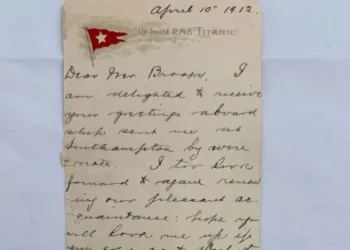 April 10th 1912.
On board R.M.S. "TITANIC"
Dear Mrs. I
am delighted to receive
your greetings aboard
ship sent me at
Southampton by
note. I too look
forward to again renew
ing our pleasant ac-
quaintance: hope you
will look me up if